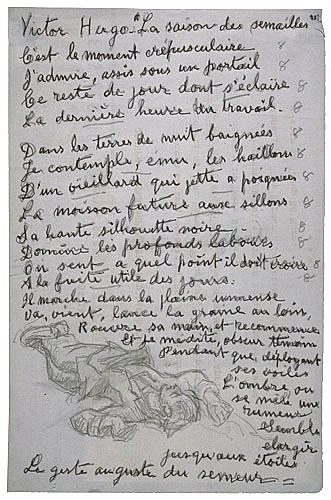 Victor Hugo "La saison des semailles
C'est le moment crépusculaire 8
J'admire, assis sous un portail 8
Ce reste de jour dont s'éclaire 8
La dernière heure du travail. 8
Dans les terres de nuit baignées 8
Je contemple, ému, les haillons 8
D'un vieillard qui jette a poignées 8
La moisson future aux sillons 8
Sa haute silhouette noire 8
Domine les profonds labours 8
On sent a quel point il doit croire 8
A la fuite utile des jours. 8
Il marche dans la plaine immense
Va, vient, lance la graine au loin,
Rouvre sa main, et recommence
Et je médite, obscur témoin
Pendant que, déployant
ses voiles
L'ombre ou
se mêle une
rumeur
Semble
élargir
jusqu'aux étoiles
Le geste auguste du semeur